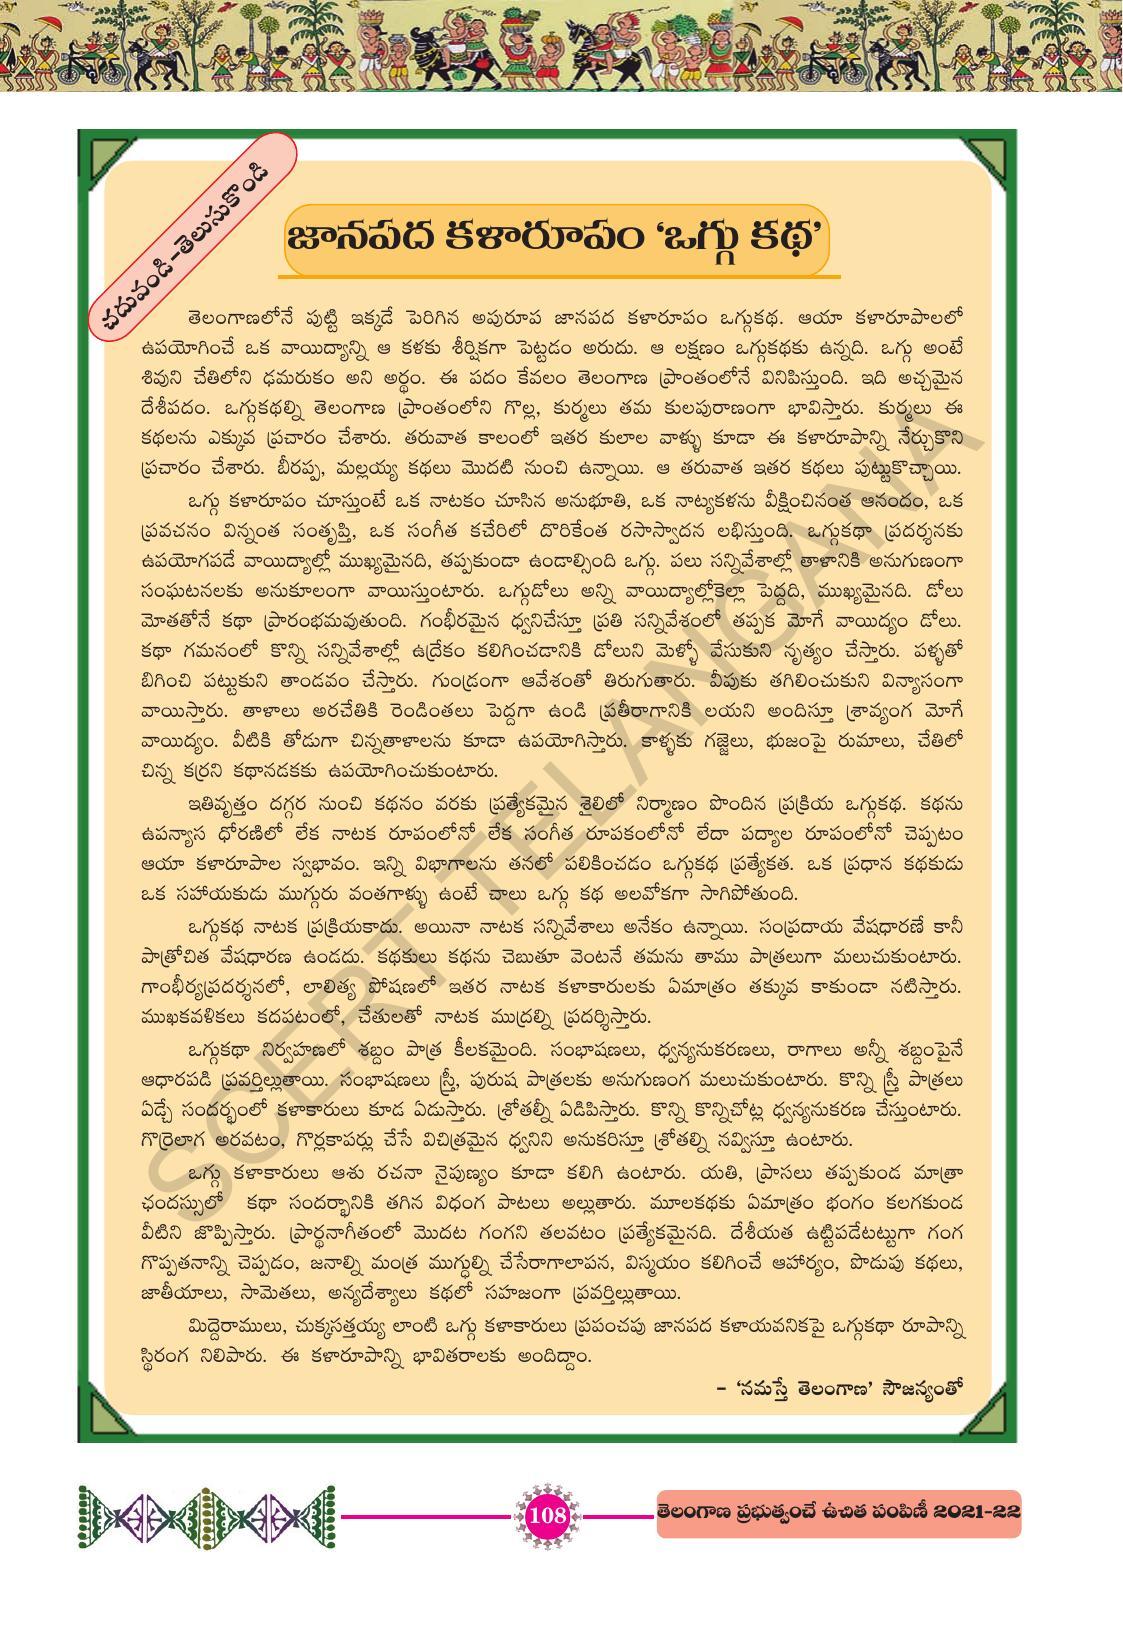 చదువండి -తెలుసుకొండి
జానపద కళారూపం ‘ఒగ్గు కథ’
తెలంగాణలోనే పుట్టి ఇక్కడే పెరిగిన అపురూప జానపద కళారూపం ఒగ్గుకథ. ఆయా కళారూపాలలో
ఉపయోగించే ఒక వాయిద్యాన్ని ఆ కళకు శీర్షికగా పెట్టడం అరుదు. ఆ లక్షణం ఒగ్గుకథకు ఉన్నది. ఒగ్గు అంటే
శివుని చేతిలోని ఢమరుకం అని అర్థం. ఈ పదం కేవలం తెలంగాణ ప్రాంతంలోనే వినిపిస్తుంది. ఇది అచ్చమైన
దేశీపదం. ఒగ్గుకథల్ని తెలంగాణ ప్రాంతంలోని గొల్ల, కురుమలు తమ కులపురాణంగా భావిస్తారు. కుర్మలు ఈ
కథలను ఎక్కువ ప్రచారం చేశారు. తరువాత కాలంలో ఇతర కులాల వాళ్ళు కూడా ఈ కళారూపాన్ని నేర్చుకొని
ప్రచారం చేశారు. బీరప్ప, మల్లయ్య కథలు మొదటి నుంచి ఉన్నాయి. ఆ తరువాత ఇతర కథలు పుట్టుకొచ్చాయి.
ఒగ్గు కళారూపం చూస్తుంటే ఒక నాటకం చూసిన అనుభూతి, ఒక నాట్యకళను వీక్షించినంత ఆనందం, ఒక
ప్రవచనం విన్నంత సంతృప్తి, ఒక సంగీత కచేరిలో దొరికేంత రసాస్వాదన లభిస్తుంది. ఒగ్గుకథా ప్రదర్శనకు
ఉపయోగపడే వాయిద్యాల్లో ముఖ్యమైనది, తప్పకుండా ఉండాల్సింది ఒగ్గు. పలు సన్నివేశాల్లో తాళానికి అనుగుణంగా
సంఘటనలకు అనుకూలంగా వాయిస్తుంటారు. ఒగ్గుడోలు అన్ని వాయిద్యాల్లోకెల్లా పెద్దది, ముఖ్యమైనది. డోలు
మోతతోనే కథా ప్రారంభమవుతుంది. గంభీరమైన ధ్వనిచేస్తూ ప్రతి సన్నివేశంలో తప్పక మోగే వాయిద్యం డోలు.
కథా గమనంలో కొన్ని సన్నివేశాల్లో ఉద్రేకం కలిగించడానికి డోలుని మెళ్ళో వేసుకుని నృత్యం చేస్తారు. పళ్ళతో
బిగించి పట్టుకుని తాండవం చేస్తారు. గుండ్రంగా ఆవేశంతో తిరుగుతారు. వీపుకు తగిలించుకుని విన్యాసంగా
వాయిస్తారు. తాళాలు అరచేతికి రెండింతలు పెద్దగా ఉండి ప్రతీరాగానికి లయని అందిస్తూ శ్రావ్యంగ మోగే
వాయిద్యం. వీటికి తోడుగా చిన్నతాళాలను కూడా ఉపయోగిస్తారు. కాళ్ళకు గజ్జెలు, భుజంపై రుమాలు, చేతిలో
చిన్న కర్రని కథానడకకు ఉపయోగించుకుంటారు.
ఇతివృత్తం దగ్గర నుంచి కథనం వరకు ప్రత్యేకమైన శైలిలో నిర్మాణం పొందిన ప్రక్రియ ఒగ్గుకథ. కథను
ఉపన్యాస ధోరణిలో లేక నాటక రూపంలోనో లేక సంగీత రూపకంలోనో లేదా పద్యాల రూపంలోనో చెప్పటం
ఆయా కళారూపాల స్వభావం. ఇన్ని విభాగాలను తనలో పలికించడం ఒగ్గుకథ ప్రత్యేకత. ఒక ప్రధాన కథకుడు
ఒక సహాయకుడు ముగ్గురు వంతగాళ్ళు ఉంటే చాలు ఒగ్గు కథ అలవోకగా సాగిపోతుంది.
ఒగ్గుకథ నాటక ప్రక్రియకాదు. అయినా నాటక సన్నివేశాలు అనేకం ఉన్నాయి. సంప్రదాయ వేషధారణే కానీ
పాత్రోచిత వేషధారణ ఉండదు. కథకులు కథను చెబుతూ వెంటనే తమను తాము పాత్రలుగా మలుచుకుంటారు.
గాంభీర్యప్రదర్శనలో, లాలిత్య పోషణలో ఇతర నాటక కళాకారులకు ఏమాత్రం తక్కువ కాకుండా నటిస్తారు.
ముఖకవళికలు కదపటంలో, చేతులతో నాటక ముద్రల్ని ప్రదర్శిస్తారు.
ఒగ్గుకథా నిర్వహణలో శబ్దం పాత్ర కీలకమైంది. సంభాషణలు, ధ్వన్యనుకరణలు, రాగాలు అన్నీ శబ్దంపైనే
ఆధారపడి ప్రవర్తిల్లుతాయి. సంభాషణలు స్త్రీ, పురుష పాత్రలకు అనుగుణంగ మలుచుకుంటారు. కొన్ని స్త్రీ పాత్రలు
ఏడ్చే సందర్భంలో కళాకారులు కూడ ఏడుస్తారు. శ్రోతల్నీ ఏడిపిస్తారు. కొన్ని కొన్నిచోట్ల ధ్వన్యనుకరణ చేస్తుంటారు.
గొర్రెలాగ అరవటం, గొర్లకాపర్లు చేసే విచిత్రమైన ధ్వనిని అనుకరిస్తూ శ్రోతల్ని నవ్విస్తూ ఉంటారు.
ఒగ్గు కళాకారులు ఆశు రచనా నైపుణ్యం కూడా కలిగి ఉంటారు. యతి, ప్రాసలు తప్పకుండ మాత్రా
ఛందస్సులో కథా సందర్భానికి తగిన విధంగ పాటలు అల్లుతారు. మూలకథకు ఏమాత్రం భంగం కలగకుండ
వీటిని జొప్పిస్తారు. ప్రార్థనాగీతంలో మొదట గంగని తలవటం ప్రత్యేకమైనది. దేశీయత ఉట్టిపడేటట్టుగా గంగ
గొప్పతనాన్ని చెప్పడం, జనాల్ని మంత్ర ముగ్ధుల్ని చేసేరాగాలాపన, విస్మయం కలిగించే ఆహార్యం, పొడుపు కథలు,
జాతీయాలు, సామెతలు, అన్యదేశ్యాలు కథలో సహజంగా ప్రవర్తిల్లుతాయి.
మిద్దెరాములు, చుక్కసత్తయ్య లాంటి ఒగ్గు కళాకారులు ప్రపంచపు జానపద కళాయవనికపై ఒగ్గుకథా రూపాన్ని
స్థిరంగ నిలిపారు. ఈ కళారూపాన్ని భావితరాలకు అందిద్దాం.
– ‘నమస్తే తెలంగాణ’ సౌజన్యంతో
SCERT TELANGANA
108
తెలంగాణ ప్రభుత్వంచే ఉచిత పంపిణీ 2021-22